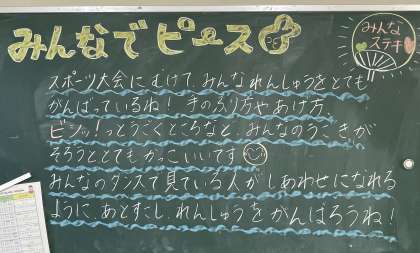 みんなでピース
みんな
ステキ
スポーツ大会にむけて、みんなれんしゅうをとても
がんばっているね！手のふり方やあげ方、
ビシッ！っとうごくところなど、みんなのうごきが
そろうととてもかっこいいです
みんなのダンスで見ている人がしあわせになれる
ように、あとすこし、れんしゅうをがんばろうね！